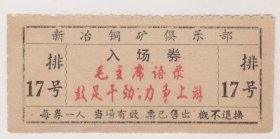 新冶铜矿俱乐部
入场券
排 17号
毛主席语录
鼓足干劲,力争上游
排 17号
每券一人 当场有效 票已售出 概不退换